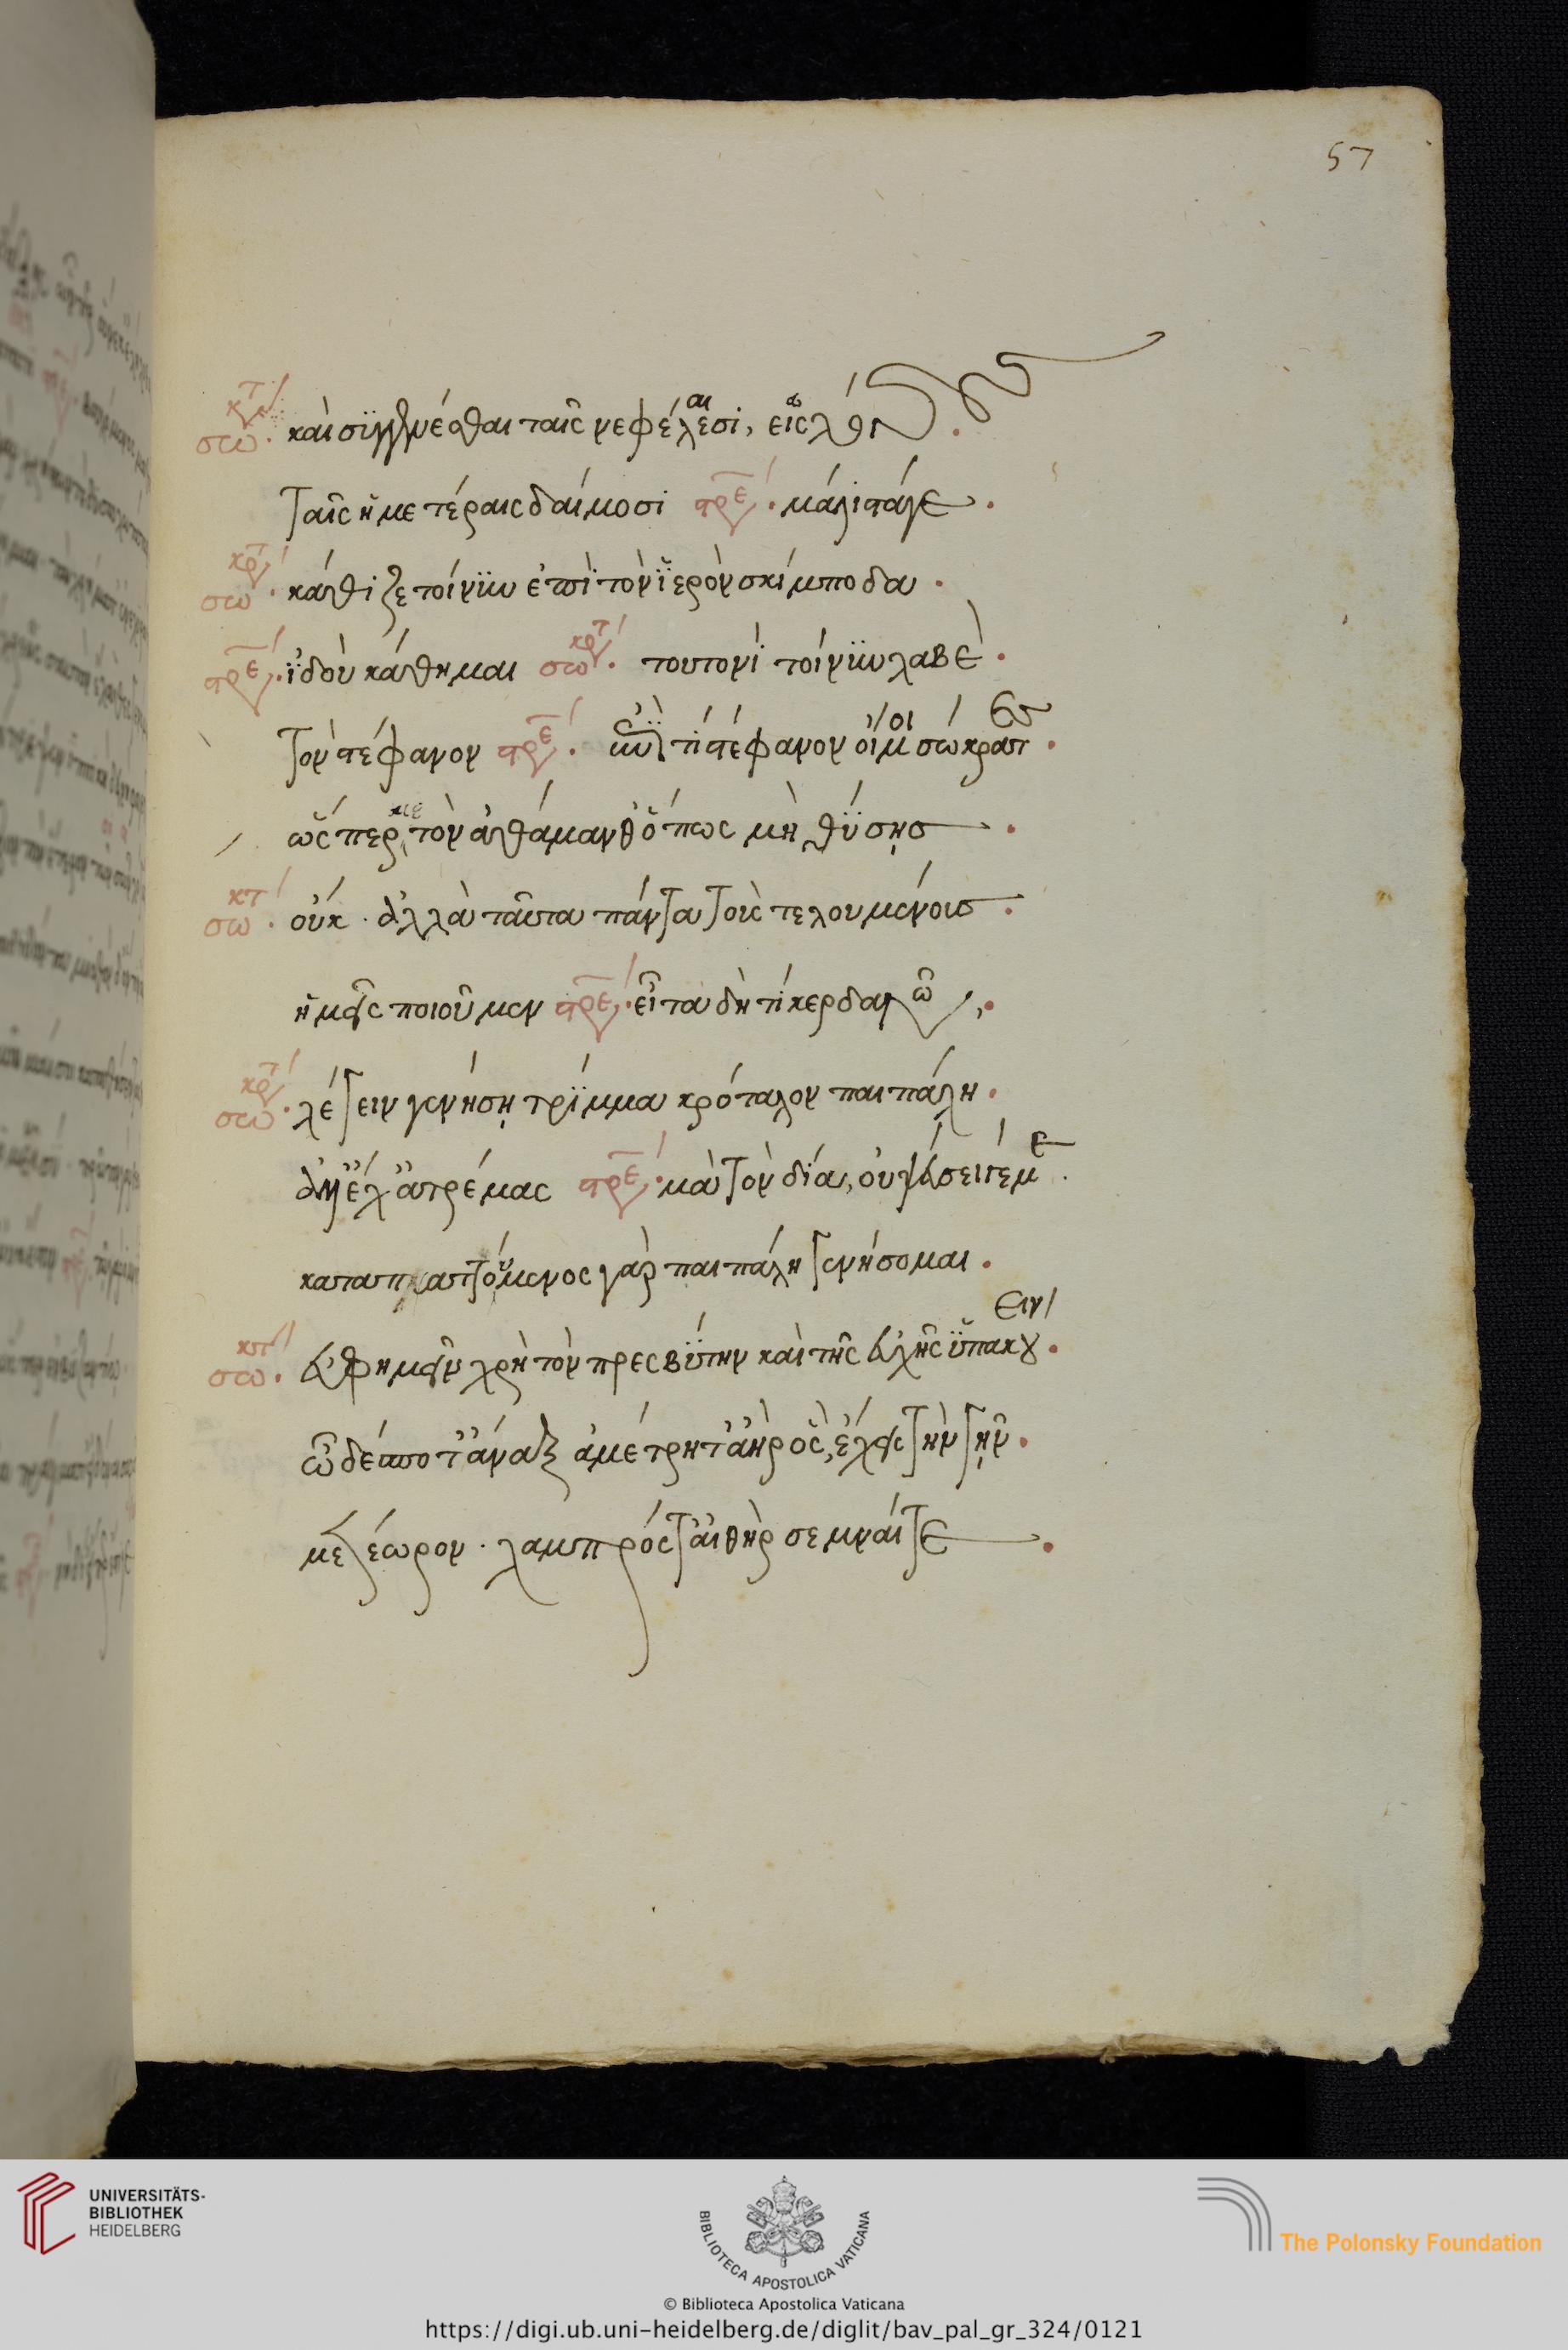 57
σω κτ. καὶ συγγενέσθαι ταῖς νεφέλεσι, εἰς λόγους.
ταῖς ἡμετέραις δαίμοσι στρε. μάλιστά γε.
σω κρτ. κάθιζε τοίνυν ἐπὶ τὸν ἱερὸν σκίμποδα.
στρε. ἰδοὺ κάθημαι σω κρτ. τουτονὶ τοίνυν λαβὲ.
τὸν στέφανον στρε. ἐπὶ τί στέφανον οἴμοι σώκρατες.
ὥσπερ με τὸν ἀθάμανθ ὅπως μὴ θύσητε.
σω κτ. οὐκ. ἀλλὰ ταῦτα πάντα τοὺς τελουμένους.
ἡμεῖς ποιοῦμεν στρε. εἶτα δὴ τί κερδανῶ.
σω κρτ. λέγειν γενήσῃ τρῖμμα κρόταλον παιπάλη.
ἀλλ ἔχ ἀτρέμας στρε. μὰ τὸν δία, οὐ ψεύσει γέ με.
καταπαττόμενος γὰρ παιπάλη γενήσομαι.
σω κτ. εὐφημεῖν χρὴ τὸν πρεσβύτην καὶ τῆς εὐχῆς ὑπακούειν.
ὦ δέσποτ ἄναξ ἀμέτρητ ἀὴρ ὃς ἔχεις τὴν γῆν.
μετέωρον. λαμπρός τ αἰθὴρ σεμναί τε.
UNIVERSITÄTS-
BIBLIOTHEK
HEIDELBERG
BIBLIOTECA APOSTOLICA VATICANA
The Polonsky Foundation
© Biblioteca Apostolica Vaticana
https://digi.ub.uni-heidelberg.de/diglit/bav_pal_gr_324/0121